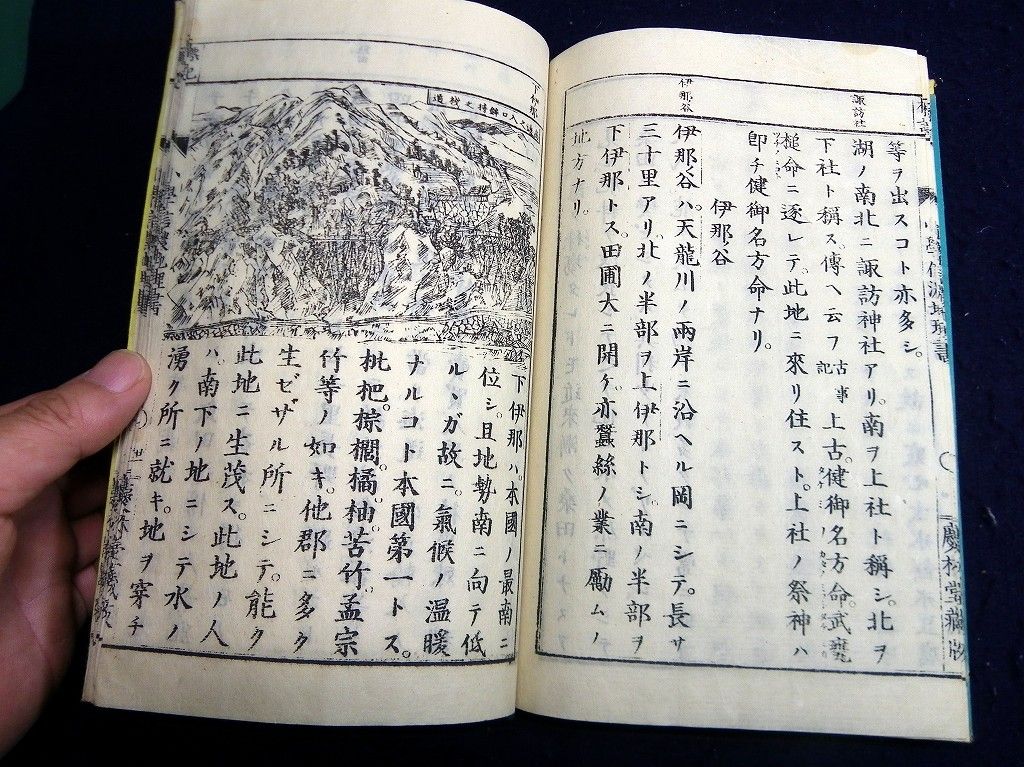 諏訪社
伊那谷
等ヲ出スコト亦多シ。
湖ノ南北ニ諏訪神社アリ。南ヲ上社ト稱シ。北ヲ
下社ト稱ス。傳ヘ云フ古事記上古。健御名方命。武甕
槌命ニ逐レテ。此地ニ來リ住スト。上社ノ祭神ハ
卽チ健御名方命ナリ。
伊那谷
伊那谷ハ。天龍川ノ兩岸ニ沿ヘル岡ニシテ。長サ
三十里アリ。北ノ半部ヲ上伊那トシ。南ノ半部ヲ
下伊那トス。田圃大ニ開ケ。亦蠶絲ノ業ニ勵ムノ
地方ナリ。
慶林堂藏版
下伊那
下伊那ハ。本國ノ最南ニ
位シ。且地勢南ニ向テ低
ルヽガ故ニ。氣候ノ温暖
ナルコト本國第一トス。
枇杷。棕櫚。橘。柚。苦竹。孟宗
竹等ノ如キ。他郡ニ多ク
生ゼザル所ニシテ。能ク
此地ニ生茂ス。此地ノ人
ハ。南下ノ地ニシテ水ノ
湧ク所ニ就キ。地ヲ穿チ